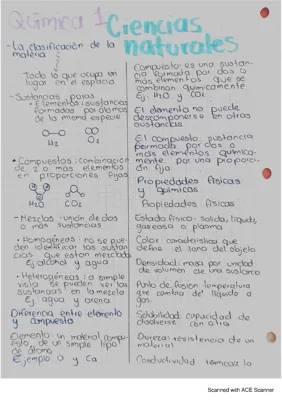 Química 1
Ciencias
naturales
-La clasificación de la
materia
Todo lo que ocupa un
lugar en el espacio
-Sustancias puras
• Elementos: sustancias
formadas por átomos
de la misma especie
O2
• Compuestos: combinación
de 2 o más elementos
en proporciones fijas
H2O CO2
-Mezclas: unión de dos
o más sustancias
• Homogéneas: no se pue-
den identificar las sustan
cias que están mezcladas
Ej alcohol y agua
• Heterogéneas: a simple
vista se pueden ver las
sustancias en la mezcla
Ej agua y arena
Diferencia entre elemento
y compuesto
Elemento: un material compu-
esto, de un simple tipo
de átomo
Ejemplo O y Ca
Compuesto: es una sustan-
cia formada por dos o
más elementos que se
combinan químicamente
Ej: H2O y CO2
El elemento no puede
descomponerse en otras
sustancias
El compuesto, sustancia
formada por dos o
más elementos química-
mente por una proporci-
ón fija
Propiedades físicas
y químicas
Propiedades físicas
Estado físico: solida, liquida,
gaseosa o plasma
Color: característica que
define el tono del objeto
Densidad: masa por unidad
de volumen de una sustancia
Punto de fusión temperatura
que cambia del líquido a
gas
Solubilidad: capacidad de
disolverse con otra
Dureza: resistencia de un
material
Conductividad térmica: la
Scanned with ACE Scanner